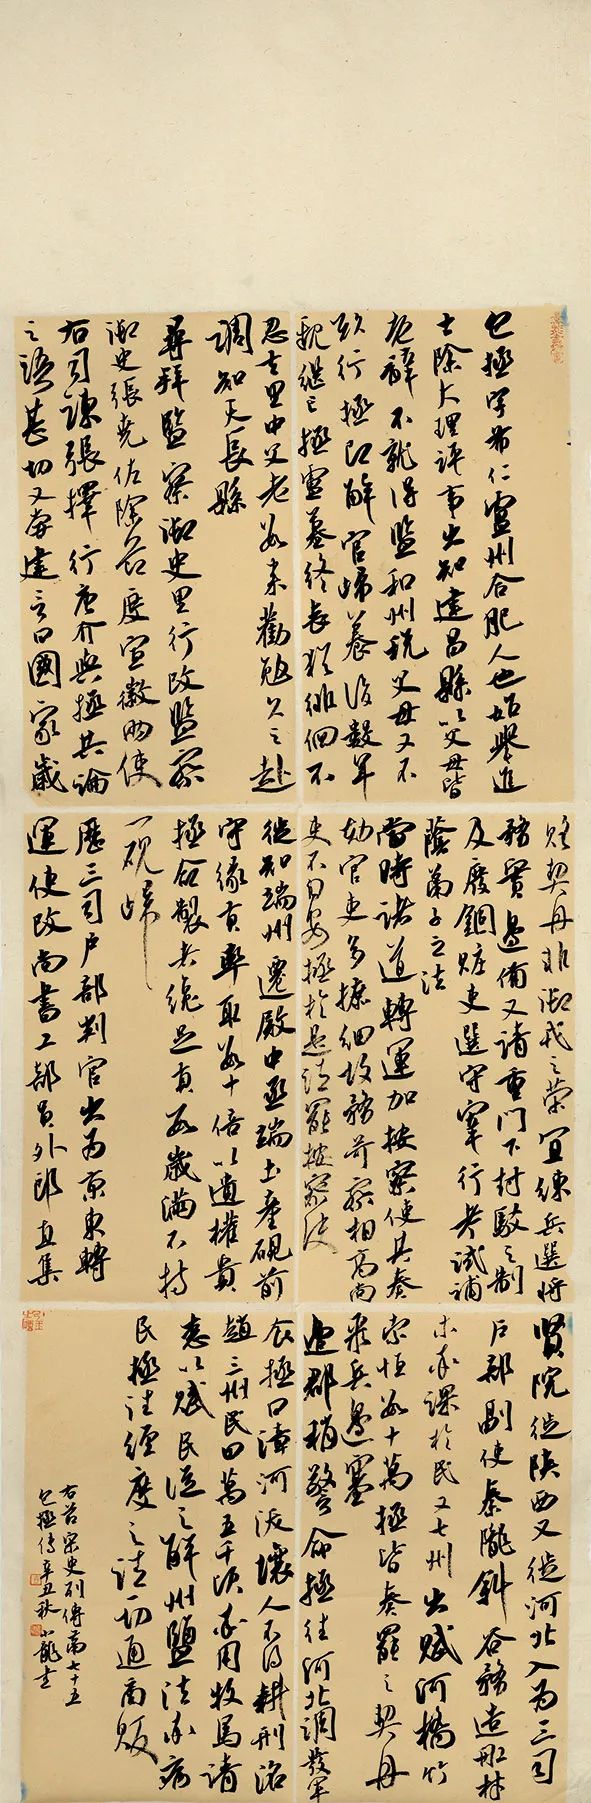 包拯字希仁廬州合肥人也始舉進
士除大理評事出知建昌縣以父母皆
老辭不就得監和州稅父母又不
欲行拯即解官歸養後數年
親繼亡拯廬墓終喪猶徘徊不
忍去里中父老數來勸勉久之赴
調知天長縣
尋拜監察御史里行改監察
御史張堯佐除節度宣徽兩使
右司諫張擇行唐介與拯共論
之語甚切又嘗建言曰國家歲
賂契丹非御戎之策宜練兵選將
務實邊備又請重門下封駁之制
及廢錮贓吏選守宰行考試補
蔭弟子之法
當時諸道轉運加按察使其奏
劾官吏多摭細故務苛察相高尚
吏不自安拯於是請罷按察使
徙知端州遷殿中丞端土產硯前
守緣貢率取數十倍以遺權貴
拯命製者纔足貢數歲滿不持
一硯歸
歷三司戶部判官出為京東轉
運使改尚書工部員外郎直集
賢院徙陝西又徙河北入為三司
戶部副使秦隴斜谷務造船材
木率課於民又七州出賦河橋竹
索恒數十萬拯皆奏罷之契丹
聚兵邊塞
邊郡稍警命拯往河北調發軍
食拯曰漳河沃壤人不得耕邢洺
趙三州民田萬五千頃率用牧馬請
悉以賦民從之解州鹽法率病
民拯往經度之請一切通商販
右節宋史列傳第七十五
包拯傳辛丑秋小龍書